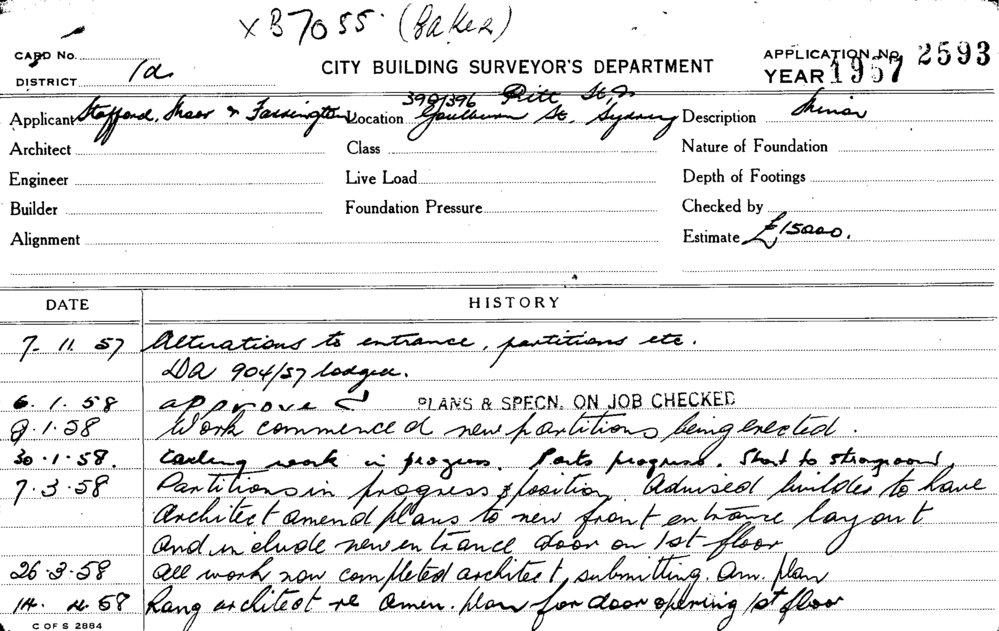 XB7055 (Baker)
CARD No.
DISTRICT 1d
CITY BUILDING SURVEYOR'S DEPARTMENT
APPLICATION No. 2593
YEAR 1957
Applicant Stafford, Moor & Farrington
Location 390/396 Pitt St, &
Goulburn St, Sydney
Description Minor
Architect
Class
Nature of Foundation
Engineer
Live Load
Depth of Footings
Builder
Foundation Pressure
Checked by
Alignment
Estimate £15000.
DATE HISTORY
7. 11. 57 Alterations to entrance, partitions etc.
DA 904/57 lodged.
6. 1. 58 approved PLANS & SPECN. ON JOB CHECKED
9.1.58 Work commenced new partitions being erected.
30.1.58. work in progress. progress.
7.3.58 Partitions in progress & position. Advised builder to have
Architect amend plans to new front entrance layout
and include new entrance door on 1st floor
26.3.58 All work now completed architect submitting. Am. plan
14. 4. 58 Rang architect re Amen. plan for door opening 1st floor
C OF S 2884